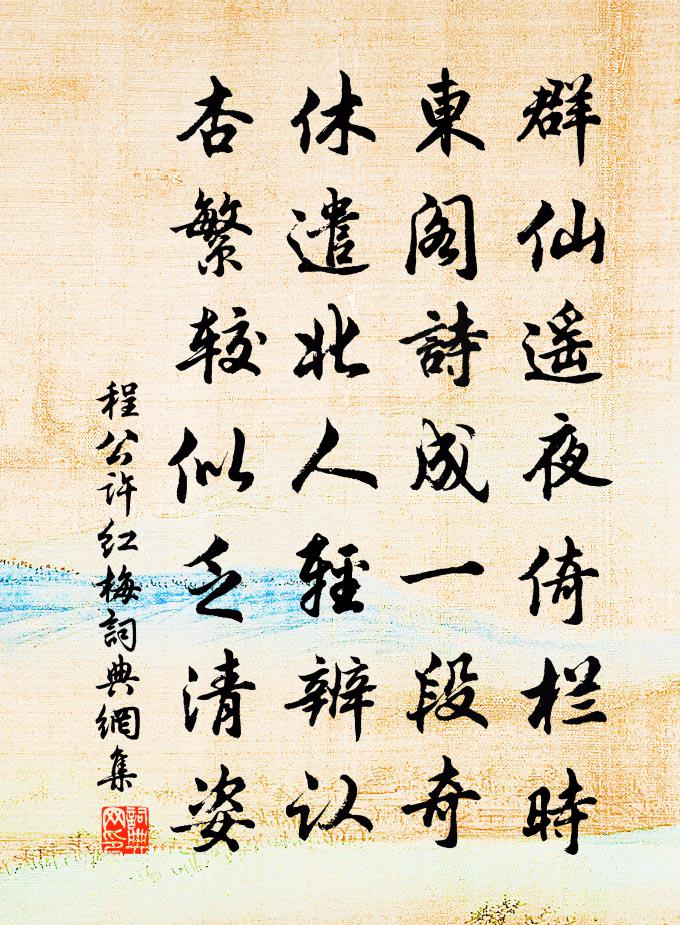 群仙遥夜倚栏時
東閣詩成一段奇
休遣北人輕辨认
杏繁较似乏清姿
程公许红梅詞典網集
詞典网印